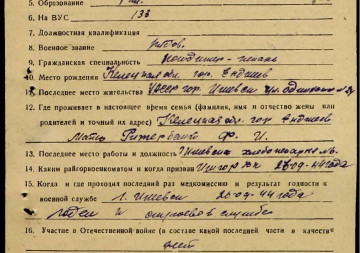 5. Образование
6. На ВУС 133
7. Должностная квалификация
8. Военное звание рядов.
9. Гражданская специальность кондитер-пекарь
10. Место рождения Келецкая обл. гор.
11. Последнее место жительства СССР гор. Ижевск ул.
12. Где проживает в настоящее время семья (фамилия, имя и отчество жены или
родителей и точный их адрес) Келецкая обл. гор.
Мать Ф. И.
13. Последнее место работы и должность Ижевский хлебопекарь
14. Каким райгорвоенкоматом и когда призван РВК 28-09-44 года
15. Когда и где проходил последний раз медкомиссию и результат годности к
военной службе г. Ижевск 28-09-44 года
годен к службе
16. Участие в Отечественной войне (в составе какой последней части и в качеств
нет